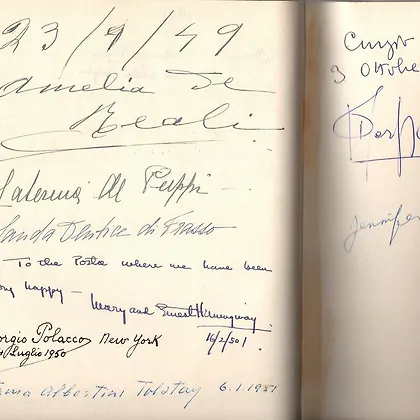 23/9/49
Amelia de
Reali
Caterina de Puppi
Wanda Dentice di Frasso
To the Posta where we have been
very happy —
Mary and Ernest Hemingway.
16/2/50
Giorgio Polacco New York
Luglio 1950
Albertini Tolstay 6.1.1951
3 Ottobre
Jennifer